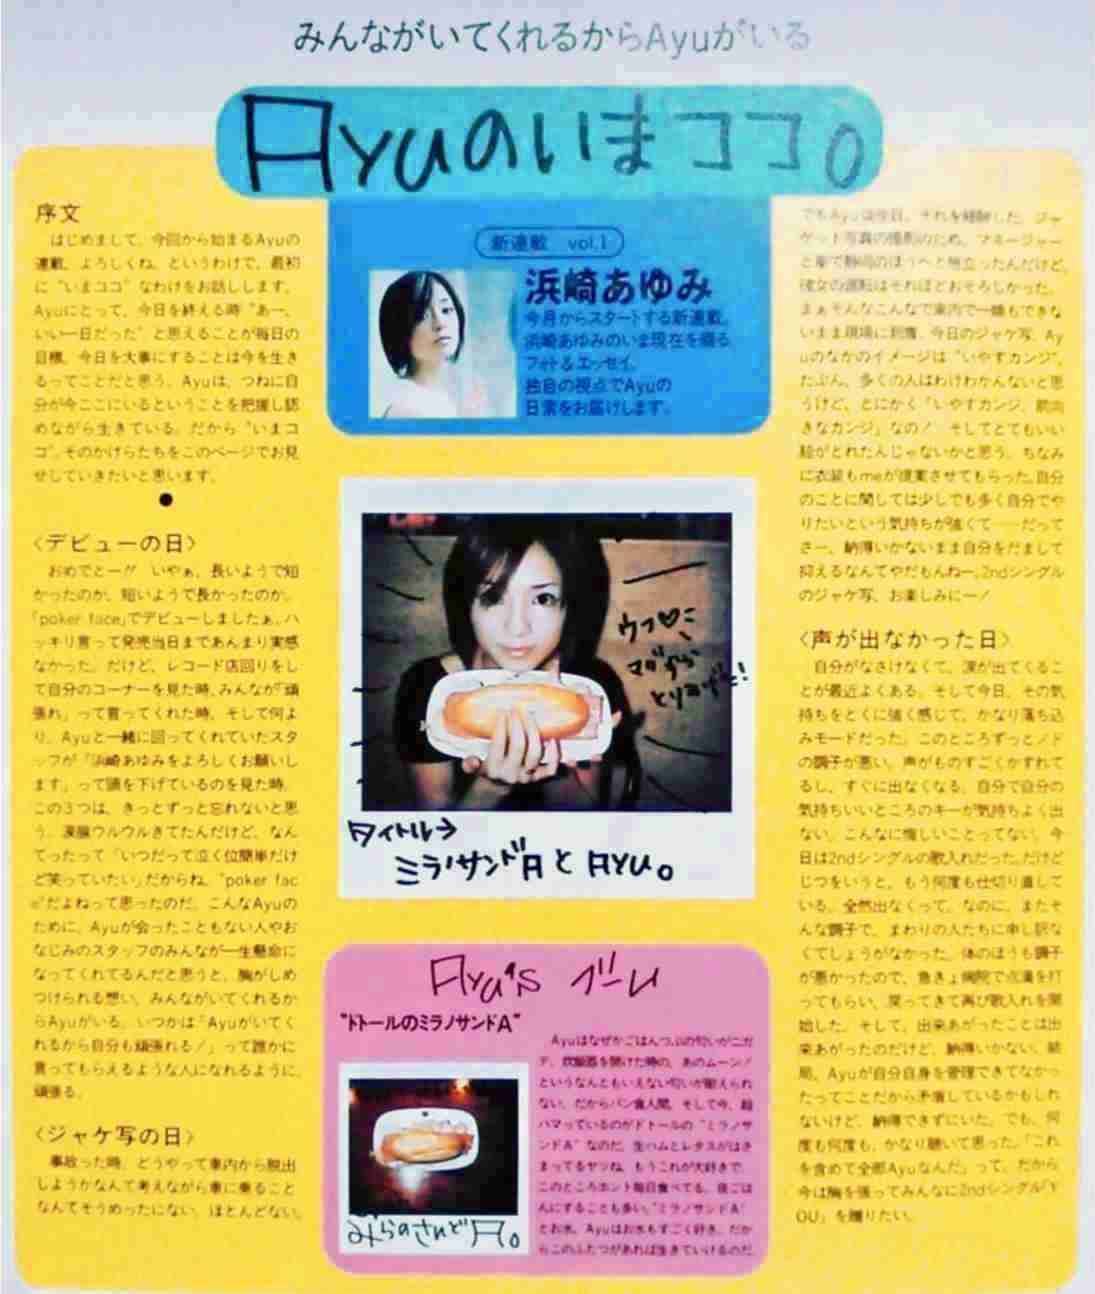 みんながいてくれるからAyuがいる
Ayuのいまココ。
新連載 vol.1
浜崎あゆみ
今月からスタートする新連載。
浜崎あゆみのいま現在を綴る
フォト＆エッセイ。
独自の視点でAyuの
日常をお届けします。
序文
はじめまして、今回から始まるAyuの
連載、よろしくね。というわけで、最初
に“いまココ”なわけをお話しします。
Ayuにとって、今日を終える時“あー、
いい一日だった”と思えることが毎日の
目標。今日を大事にすることは今を生き
るってことだと思う。Ayuは、つねに自
分が今ここにいるということを把握し認
めながら生きている。だから“いまココ
”。そのかけらたちをこのページでお見
せしていきたいと思います。
●
〈デビューの日〉
おめでとー!! いやぁ、長いようで短
かったのか、短いようで長かったのか。
「poker face」でデビューしましたぁ。ハ
ッキリ言って発売当日まであんまり実感
なかった。だけど、レコード店回りをし
て自分のコーナーを見た時、みんなが「頑
張れ」って言ってくれた時、そして何よ
り、Ayuと一緒に回ってくれていたスタ
ッフが「浜崎あゆみをよろしくお願いし
ます」って頭を下げているのを見た時。
この3つは、きっとずっと忘れないと思
う。涙腺ウルウルきてたんだけど、なん
てったって「いつだって泣く位簡単だけ
ど笑っていたい」だからね。“poker fac
e”だよねって思ったのだ。こんなAyuの
ために、Ayuが会ったこともない人やお
なじみのスタッフのみんなが一生懸命に
なってくれてるんだと思うと、胸がしめ
つけられる想い。みんながいてくれるか
らAyuがいる。いつかは「Ayuがいてく
れるから自分も頑張れる！」って誰かに
言ってもらえるような人になれるように、
頑張る。
〈ジャケ写の日〉
事故った時、どうやって車内から脱出
しようかなんて考えながら車に乗ること
なんてそうめったにない。ほとんどない。
ウフ♡
タイトル→
ミラノサンドAとAyu。
Ayu's ブーム
“ドトールのミラノサンドA”
Ayuはなぜかごはんつぶの匂いがニガ
テ。炊飯器を開けた時の、あのムーン！
というなんともいえない匂いが耐えられ
ない。だからパン食人間。そして今、超
ハマっているのがドトールの“ミラノサ
ンドA”なのだ。生ハムとレタスがはさ
まってるヤツね。もうこれが大好きで、
このところホント毎日食べてる。夜ごは
んにすることも多い。“ミラノサンドA”
とお水。Ayuはお水もすごく好き。だか
らこのふたつがあれば生きていけるのだ。
みらのさんどA。
でもAyuは今日、それを経験した。ジャ
ケット写真の撮影のため、マネージャー
と車で静岡のほうへと旅立ったんだけど、
彼女の運転はそれほどおそろしかった。
まぁそんなこんなで車内で一睡もできな
いまま現場に到着。今日のジャケ写、Ay
uのなかのイメージは“いやすカンジ”。
たぶん、多くの人はわけわかんないと思
うけど、とにかく「いやすカンジ、前向
きなカンジ」なの！ そしてとてもいい
絵がとれたんじゃないかと思う。ちなみ
に衣装もmeが提案させてもらった。自分
のことに関しては少しでも多く自分でや
りたいという気持ちが強くて……だって
さー、納得いかないまま自分をだまして
抑えるなんてやだもんねー。2ndシングル
のジャケ写、お楽しみにー！
〈声が出なかった日〉
自分がなさけなくて、涙が出てくるこ
とが最近よくある。そして今日、その気
持ちをとくに強く感じて、かなり落ち込
みモードだった。このところずっとノド
の調子が悪い。声がものすごくかすれて
るし、すぐに出なくなる。自分で自分の
気持ちいいところのキーが気持ちよく出
ない。こんなに悔しいことってない。今
日は2ndシングルの歌入れだった。だけど
じつをいうと、もう何度も仕切り直して
いる。全然出なくって。なのに、またそ
んな調子で、まわりの人たちに申し訳な
くてしょうがなかった。体のほうも調子
が悪かったので、急きょ病院で点滴を打
ってもらい、戻ってきて再び歌入れを開
始した。そして、出来あがったことは出
来あがったのだけど、納得いかない。結
局、Ayuが自分自身を管理できてなかっ
たってことだから矛盾しているかもしれ
ないけど、納得できずにいた。でも、何
度も何度も、かなり聴いて思った。「これ
を含めて全部Ayuなんだ」って。だから
今は胸を張ってみんなに2ndシングル「Y
OU」を贈りたい。